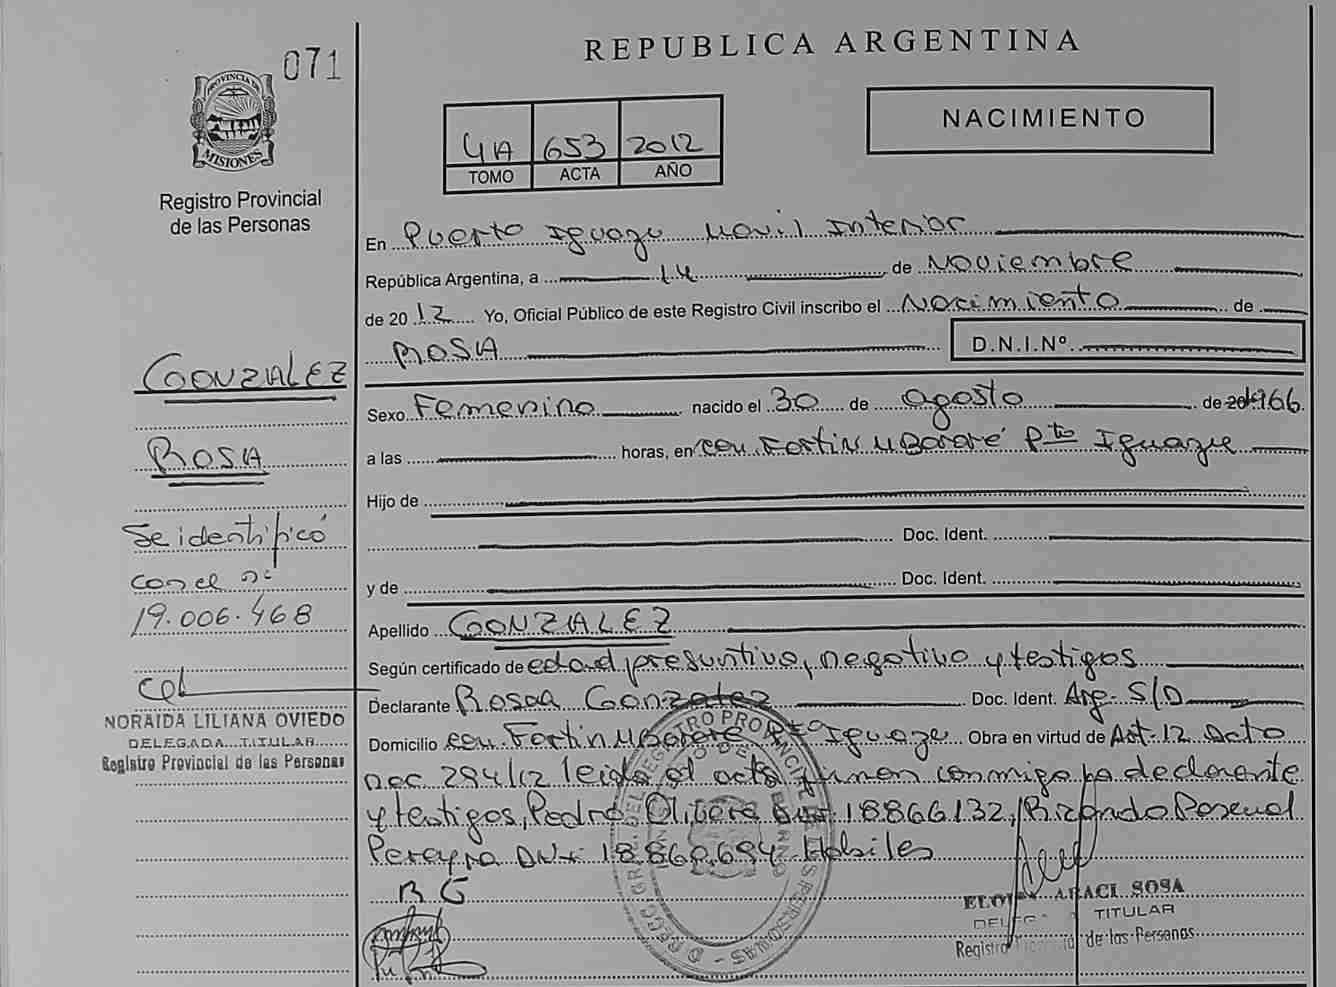 071
PROVINCIA DE
MISIONES
Registro Provincial
de las Personas
GONZALEZ
ROSA
Se identificó
con el nº
19.006.468
NORAIDA LILIANA OVIEDO
DELEGADA TITULAR
Registro Provincial de las Personas
REPUBLICA ARGENTINA
4A 653 2012
TOMO ACTA AÑO
NACIMIENTO
En Puerto Iguazu Movil Interior
República Argentina, a 14 de Noviembre
de 2012 Yo, Oficial Público de este Registro Civil inscribo el Nacimiento de
ROSA D.N.I.Nº
Sexo Femenino nacido el 30 de agosto de 1966
a las horas, en com. Fortin Mbororé Pto Iguazu
Hijo de
Doc. Ident.
y de Doc. Ident.
Apellido GONZALEZ
Según certificado de edad presuntiva, negativo y testigos
Declarante Rosa Gonzalez Doc. Ident. Arg- S/D
Domicilio com. Fortin Mbororé Pto Iguazu Obra en virtud de Art-12 Dcto
Dec 294/12 leida el acta firman conmigo la declarante
y testigos, Pedro Olivera DNI 18866132, Ricardo Pascual
Pereyra DNI 18.860.694 Habiles
R G
ELOISA ARACI SOSA
TITULAR
Registro de las Personas